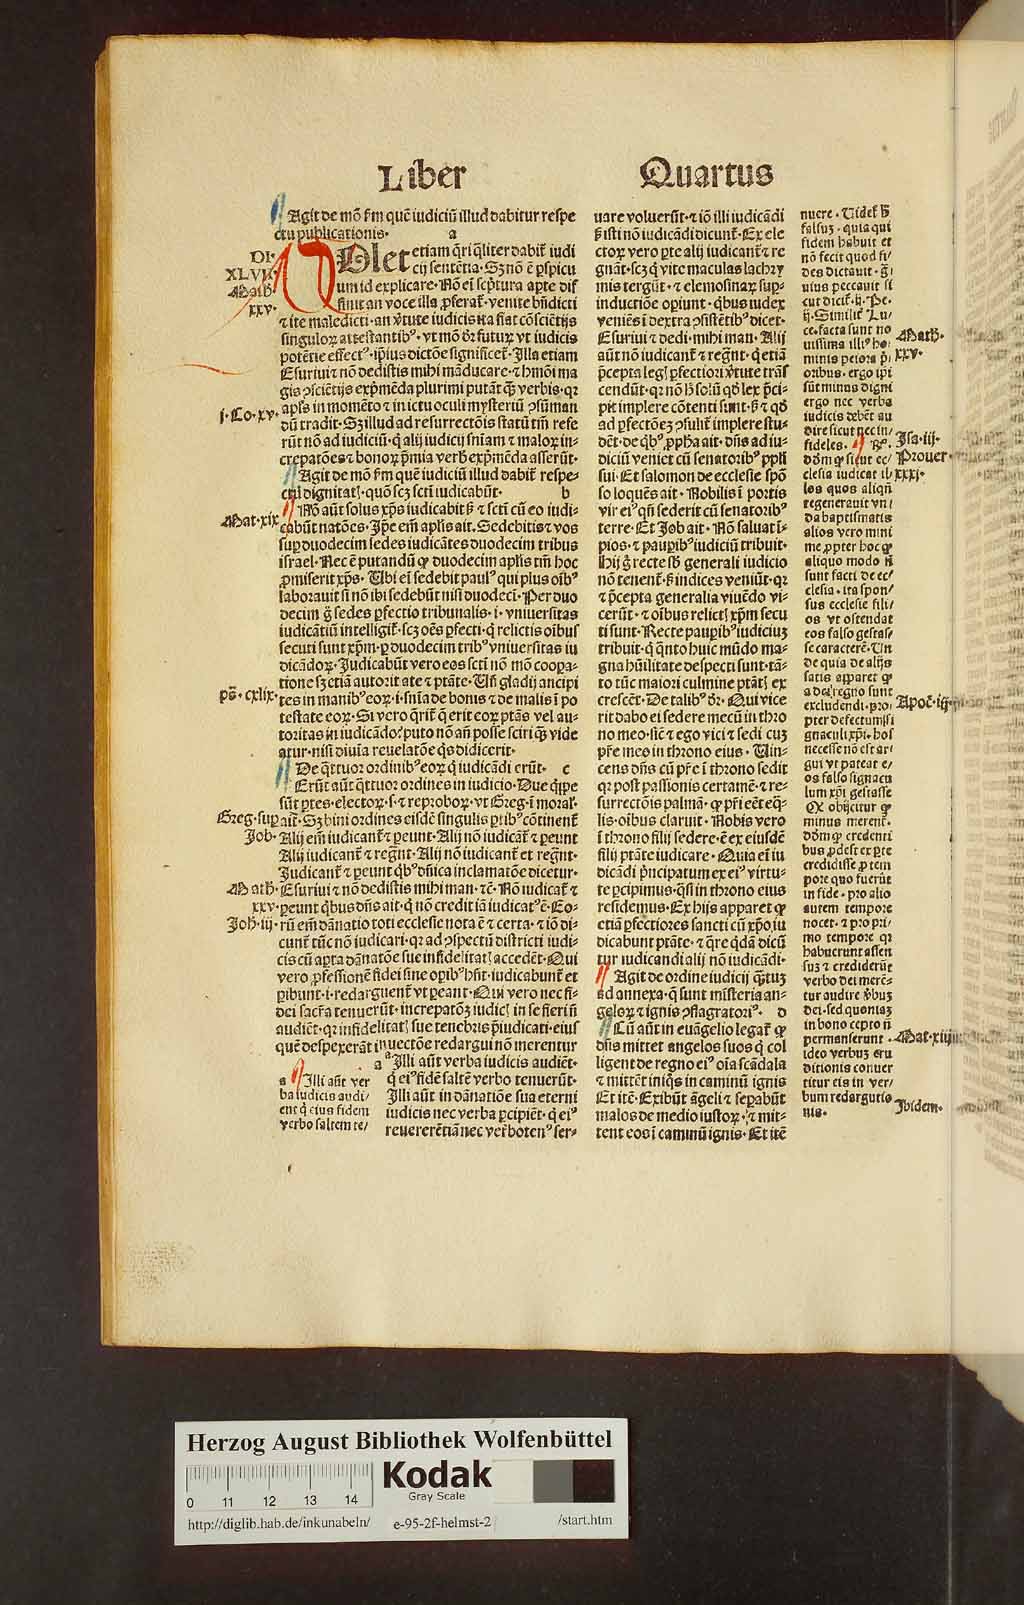 Liber Quartus
Agit de mō ſm quē iudiciū illud dabitur reſpe
ctu publicationis. a
DI.
XLVII.
Math.
xxv.
SOlet etiam q̄ri q̄liter dabiť iudi
cij ſentētia. Sꝫ nō ē ꝑſpicu
um id explicare. Nō ei ſcptura apte dif
finit an voce illa ꝓferať. venite bn̄dicti
⁊ ite maledicti. an v̓tute iudicis ita fiat cōſciētijs
ſinguloꝝ atteſtantibꝰ. vt mō dr̄ futuꝝ vt iudicis
potētie effectꝰ. ipius dictōe ſignificeť. Illa etiam
Eſuriui ⁊ nō dediſtis mihi māducare. ⁊ hmōi ma
gis ꝯſciētijs exp̄mēda plurimi putāt q̄ꝫ verbis. qꝛ
j. Co. xv.
apl̄s in momēto ⁊ in ictu oculi myſteriū ꝯſūman
dū tradit. Sꝫ illud ad reſurrectōis ſtatū tm̄ refe
rūt nō ad iudiciū. q̄ alij iudicij ſn̄iam ⁊ maloꝝ in-
crepatōes ⁊ bonoꝝ p̄mia verb exp̄mēda aſſerūt.
Agit de mō ſm quē iudiciū illud dabiť reſpe-
ctu dignitatꝭ. quō ſcꝫ ſcti iudicabūt. b
Mat. xix
Nō aūt ſolus xp̄s iudicabit ſꝫ ⁊ ſcti cū eo iudi-
cabūt natōes. Ip̄e em̄ aplis ait. Sedebitis ⁊ vos
ſuꝑ duodecim ſedes iudicātes duodecim tribus
iſrael. Nec ē putandū ꝙ duodecim aplis tm̄ hoc
ꝓmiſerit xp̄s. Vbi ei ſedebit paulꝰ qui plus oībꝰ
laborauit ſi nō ibi ſedebūt niſi duodecī. Per duo
decim g̊ ſedes ꝑfectio tribunalis. i. vniuerſitas
iudicātiū intelligiť. ſcꝫ oēs ꝑfecti. q̄ relictis oībus
ſecuti ſunt xp̄m. ꝑ duodecim tribꝰ vniuerſitas iu
dicādoꝝ. Judicabūt vero eos ſcti nō mō coopa-
tione ſꝫ etiā autoritate ⁊ ptāte. Vn̄ gladij ancipi
ps̄. cxlix.
tes in manibꝰ eoꝝ. i. ſn̄ia de bonis ⁊ de malis ī po
teſtate eoꝝ. Si vero q̄riť q̄ erit eoꝝ ptās vel au-
toritas in iudicādo? puto nō an̄ poſſe ſciri q̄ꝫ vide
atur. niſi diuīa reuelatōe q̄s didicerit.
De q̄ttuor ordinibꝰ eoꝝ q̄ iudicādi erūt. c
Erūt aūt q̄ttuor ordines in iudicio. Due q̄ppe
ſūt ꝑtes. electoꝝ. ſ. ⁊ reproboꝝ. vt Greg. ī moral.
Greg. ſuꝑ
Job.
ait. Sꝫ bini ordines eiſdē ſingulis ꝑtibꝰ cōtinenť
Alij em̄ iudicanť ⁊ ꝑeunt. Alij nō iudicāť ⁊ ꝑeunt
Alij iudicanť ⁊ regn̄t. Alij nō iudicant̄ et regn̄t.
Judicanť ⁊ ꝑeunt q̄bꝰ dn̄ica inclamatōe dicetur.
Math.
xxv.
Joh. iij.
Eſuriui ⁊ nō dediſtis mihi man. ⁊c̄. Nō iudicať ⁊
ꝑeunt q̄bus dn̄s ait. q̄ nō credit iā iudicatꝰ ē. Eo-
rū em̄ dānatio toti eccleſie nota ē ⁊ certa. ⁊ iō di-
cunť tūc nō iudicari. qꝛ ad ꝯſpectū diſtricti iudi-
cis cū apta dānatōe ſue infidelitatꝭ accedēt. Qui
vero ꝓfeſſionē fidei ſine oꝑibꝰ hn̄t. iudicabunť et
ꝑibunt. i. redarguenť vt ꝑeant. Qui vero nec fi-
dei ſacr̄a tenuerūt. increpatōꝫ iudicꝭ in ſe fieri n̄
audiēt. qꝛ infidelitatꝭ ſue tenebris p̄iudicati. eius
quē deſpexerāt inuectōe redargui nō merentur
a Illi aūt verba iudicis audiēt.
q̄ eiꝰ fidē ſaltē verbo tenuerūt.
Illi aūt in dānatiōe ſua eterni
iudicis nec verba ꝑcipiēt. q̄ eiꝰ
reuerētiā nec verbotenꝰ ſer-
a Illi aūt ver
ba iudicis audi-
ent q̄ eius fidem
verbo ſaltem te/
uare voluerūt. ⁊ iō illi iudicādi
ſꝫ iſti nō iudicādi dicunť. Ex ele
ctoꝝ vero ꝑte alij iudicanť ⁊ re
gnāt. ſcꝫ q̄ vite maculas lachry
mis tergūt. ⁊ elemoſinaꝝ ſuꝑ-
inductiōe opiunt. q̄bus iudex
veniēs ī dextra ꝯſiſtētibꝰ dicet.
Eſuriui ⁊ dedi. mihi man. Alij
aūt nō iudicanť ⁊ regn̄t. q̄ etiā
p̄cepta legꝭ ꝑfectiori v̓tute trāſ
cendūt. qꝛ nō h̊ ſolū qd̓ lex p̄ci-
pit implere cōtenti ſunt. ſꝫ ⁊ qd̓
ad ꝑfectōeꝫ ꝯſuliť implere ſtu-
dēt. de q̄bꝰ. ꝓpha ait. dn̄s ad iu-
diciū veniet cū ſenatoribꝰ ppl̄i
ſui. Et ſalomon de eccleſie ſpō
ſo loquēs ait. Nobilis ī portis
vir eiꝰ qn̄ ſederit cū ſenatoribꝰ
terre. Et Job ait. Nō ſaluat ī-
pios. ⁊ pauꝑibꝰ iudiciū tribuit.
Hij g̊ recte ſb̓ generali iudicio
nō tenenť. ſꝫ iudices veniūt. qꝛ
⁊ p̄cepta generalia viuēdo vi-
cerūt. ⁊ oībus relictꝭ xp̄m ſecu
ti ſunt. Recte pauꝑibꝰ iudiciuꝫ
tribuit. q̄ q̄nto huic mūdo ma-
gna hūilitate deſpecti ſunt. tā-
to tūc maiori culmine ptātꝭ ex
creſcēt. De talibꝰ dr̄. Qui vice
rit dabo ei ſedere mecū in thro
no meo. ſic̄ ⁊ ego vici ⁊ ſedi cuꝫ
pr̄e meo in throno eius. Vin-
cens dn̄s cū pr̄e ī throno ſedit
qꝛ poſt paſſionis certamē. ⁊ re-
ſurrectōis palmā. ꝙ pr̄i eēt eq̄-
lis. oībus claruit. Nobis vero
ī throno filij ſedere. ē ex eiuſdē
filij ptāte iudicare. Quia ei iu
dicādi p̄ncipatum ex eiꝰ virtu-
te ꝑcipimus. q̄ſi in throno eius
reſidemus. Ex hijs apparet ꝙ
etiā ꝑfectiores ſancti cū xp̄o iu
dicabunt ptāte. ⁊ q̄re q̄dā dicū
tur iudicandi alij nō iudicādi.
Agit de ordine iudicij q̄ntuꝫ
ad annexa. q̄ ſunt miſteria an-
geloꝝ ⁊ ignis ꝯflagratoriꝰ. d
Cū aūt in euāgelio legať ꝙ
dn̄s mittet angelos ſuos q̄ col
ligent de regno eiꝰ oīa ſcādala
⁊ mittēt iniq̄s in caminū ignis
Et itē. Exibūt āgeli ⁊ ſeꝑabūt
malos de medio iuſtoꝝ. ⁊ mit-
tent eos ī caminū ignis. Et itē
nuere. Videť h̊
falſuꝫ. quia qui
fidem habuit et
nō fecit quod fi/
des dictauit. g̊/
uius peccauit ſi
cut diciť. ij. Pe.
ij. Similiť Lu/
ce. facta ſunt no
uiſſima illiꝰ ho/
minis peiora p̄i
oribus. ergo ipi
ſūt minus digni
ergo nec verba
iudicis debēt au
dire ſicut nec in/
fideles. Rº.
dd̓m ꝙ ſicut ec/
cleſia iudicat il/
los quos aliqn̄
regenerauit vn/
da baptiſmatis
alios vero mini
me ꝓpter hoc ꝙ
aliquo modo n̄
ſunt facti de ec/
cleſia. ita ſpon/
ſus eccleſie fili/
os vt oſtendat
eos falſo geſtaſ/
ſe caracterē. Vn
de quia de alijs
ſatis apparet ꝙ
a dei regno ſunt
excludendi. pro/
pter defectum ſi
gnaculi xp̄i. hoſ
neceſſe nō eſt ar/
gui vt pateat e/
os falſo ſignacu
lum xp̄i geſtaſſe
Qꝛ obijcitur ꝙ
minus merenť.
dd̓m ꝙ credenti
bus ꝓdeſt ex ꝑte
credidiſſe ꝓ tem
pore quo fuerūt
in fide. pro alio
autem tempore
nocet. ⁊ pro pri/
mo tempore qꝛ
habuerunt aſſen
ſuꝫ ⁊ crediderūt
verbo dei merē-
tur audire v̓buꝫ
dei. ſed quoniaꝫ
in bono cepto n̄
permanſerunt.
ideo verbuꝫ eru
ditionis conuer
titur eis in ver/
bum redargutio
nis.
Math.
xxv.
Iſa. iij.
Prouer.
xxxj.
Apoc̄. iij.
Mat. xiij
Ibidem.
Herzog August Bibliothek Wolfenbüttel
0 11 12 13 14
Kodak
Gray Scale
http://diglib.hab.de/inkunabeln/ e-95-2f-helmst-2 /start.htm